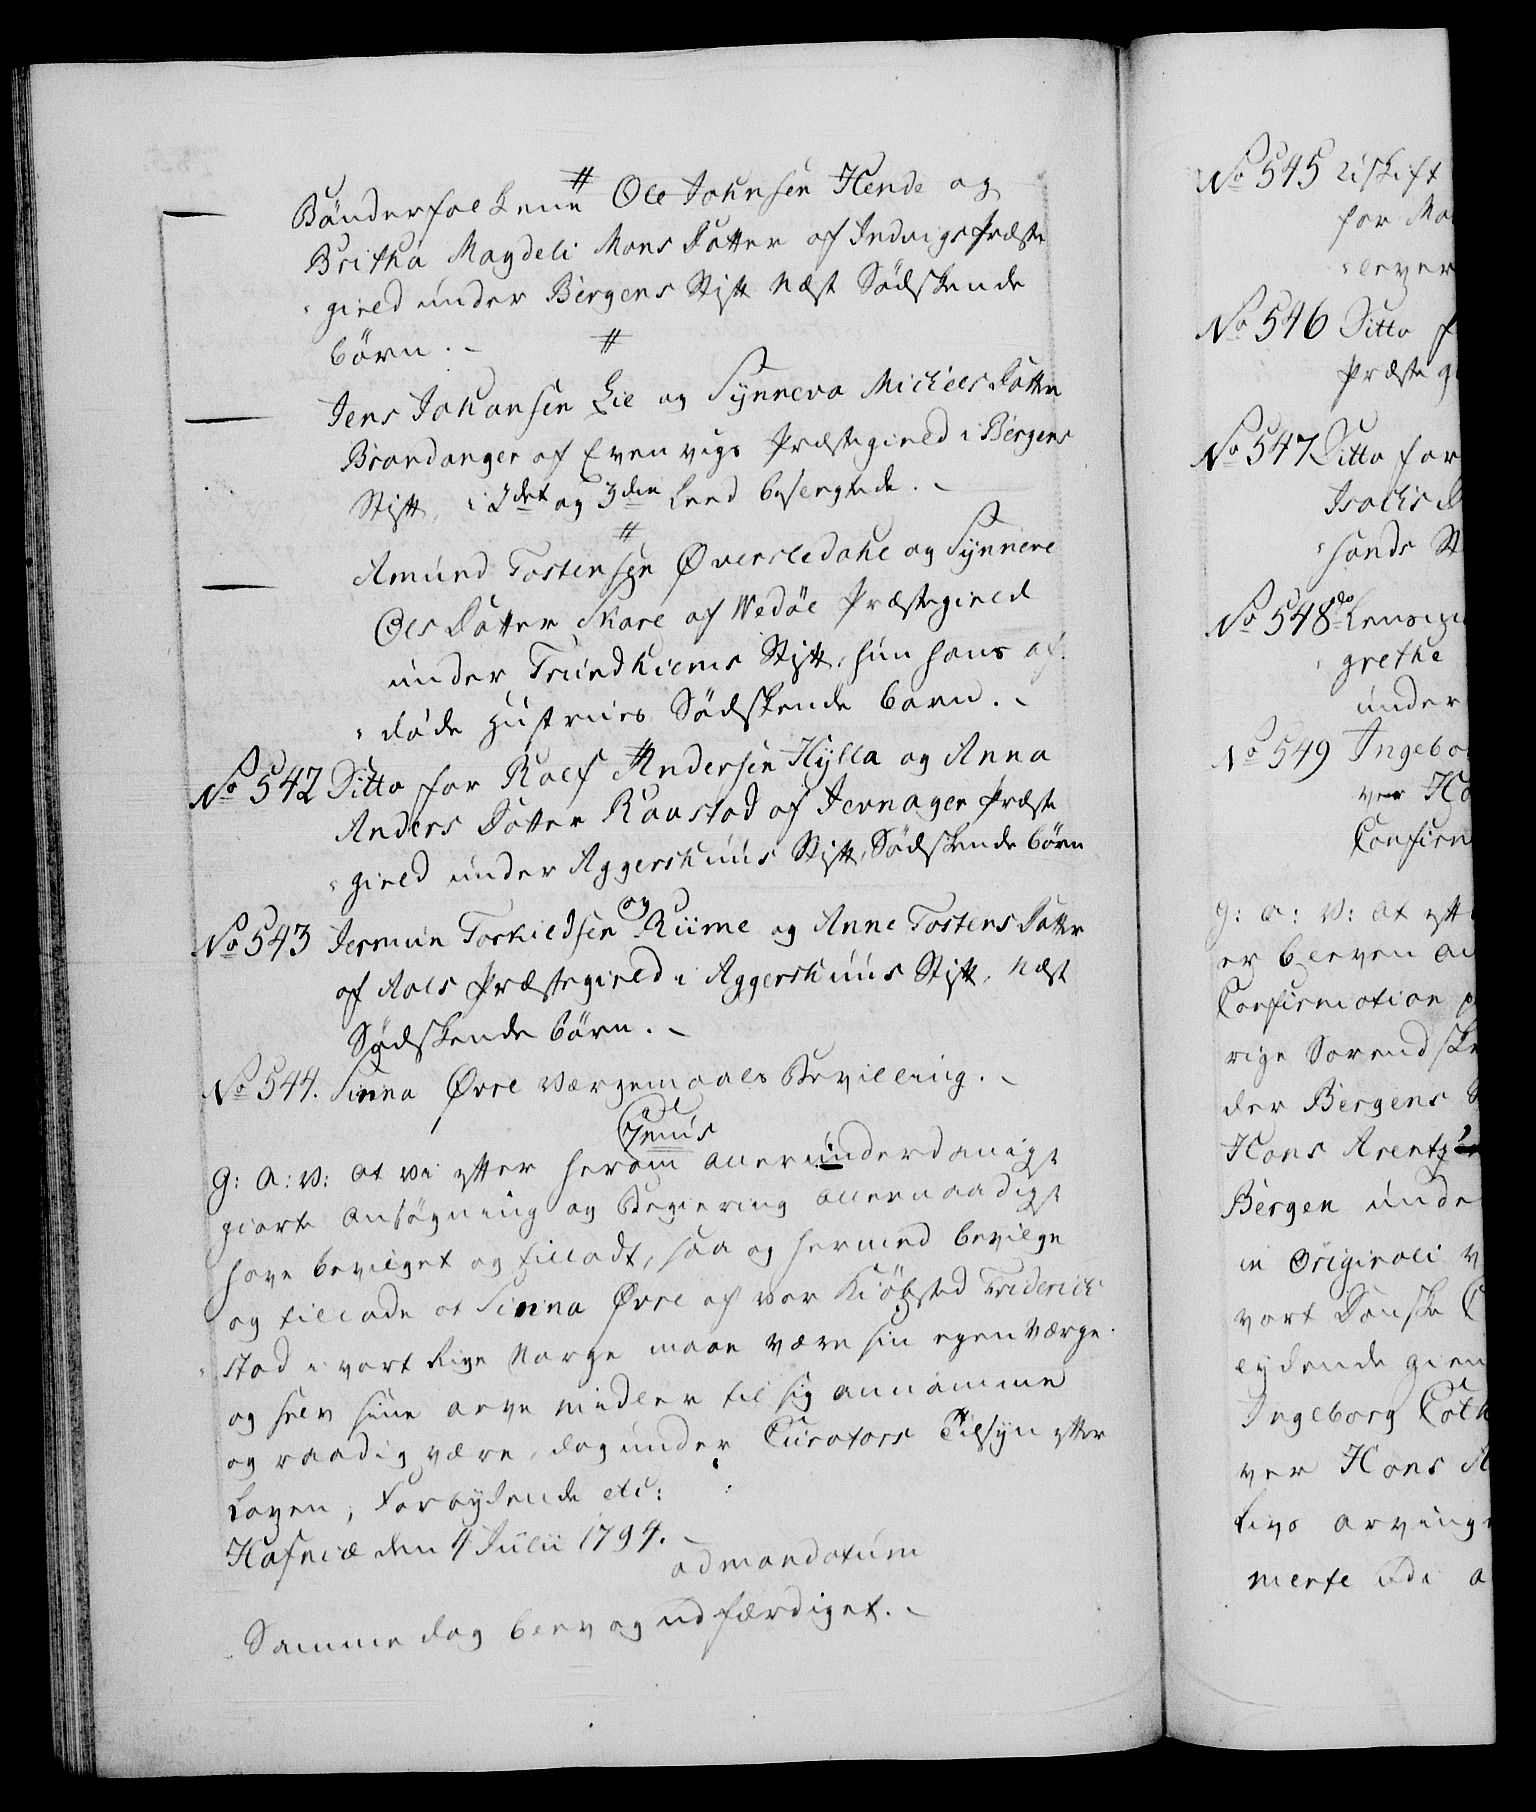 #
Bönderfolkene Ole Johnsen Hende og
Britha Magdeli Mons Datter af Indvigs Præste
gield under Bergens Stift Næst Sødskende
börn.
#
Jens Johansen Lie og Synneva Michels Datter
Brandanger af Evenvigs Præstegield i Bergens
Stift, i 2det og 3die Leed besvogrede.
#
Amund Tostensen Øversledahl og Synneve
Ols Datter Skare af Wedöe Præstegield
under Trundhiems Stift, hun hans af
döde Hustrues Sødskende barn.
No 542 Ditto for Rolf Andersen Hylla og Anna
#
Anders Datter Raastad af Jevnager Præste
gield under Aggershuus Stift, Sødskende börn
No 543 Jermun Torkildsen Riime og Anne Tostens Datter
og
af Aals Præstegield i Aggershuus Stift, Næst
Sødskende börn.
No 544. Sinna Øvre Værgemaals Bevilling.
Genus
G: A: V: at vi efter herom allerunderdanigst
giorte Ansøgning og Begiering allernaadigst
have bevilget og tilladt, saa og hermed bevilge
og tillade at Sinna Øvre af vor Kiöbsted Friderich
stad i vort Rige Norge maae være sin egen Værge
og selv sine arve midler til sig annamme
og raadig være, dog under Curators Tilsyn efter
Loven, Forbydende etc:
Hafniæ den 4 Julii 1794.
ad mandatum
Samme dag blev og udfærdiget.
No 545 Uskift
for Ma
lever
No 546 Ditto f
Præste g
No 547 Ditto for
Isachs D
sands St
No 548 do
grethe
under
No 549 Ingebo
ver Ha
Confirm
G: A: V: at eft
er bleven an
Confirmation p
rige Sorendskr
der Bergens S
Hans Arentz
Bergen unde
in Originali v
vort Danske C
lydende gien
Ingeborg Cath
ver Hans A
Livs arving
mente udi a